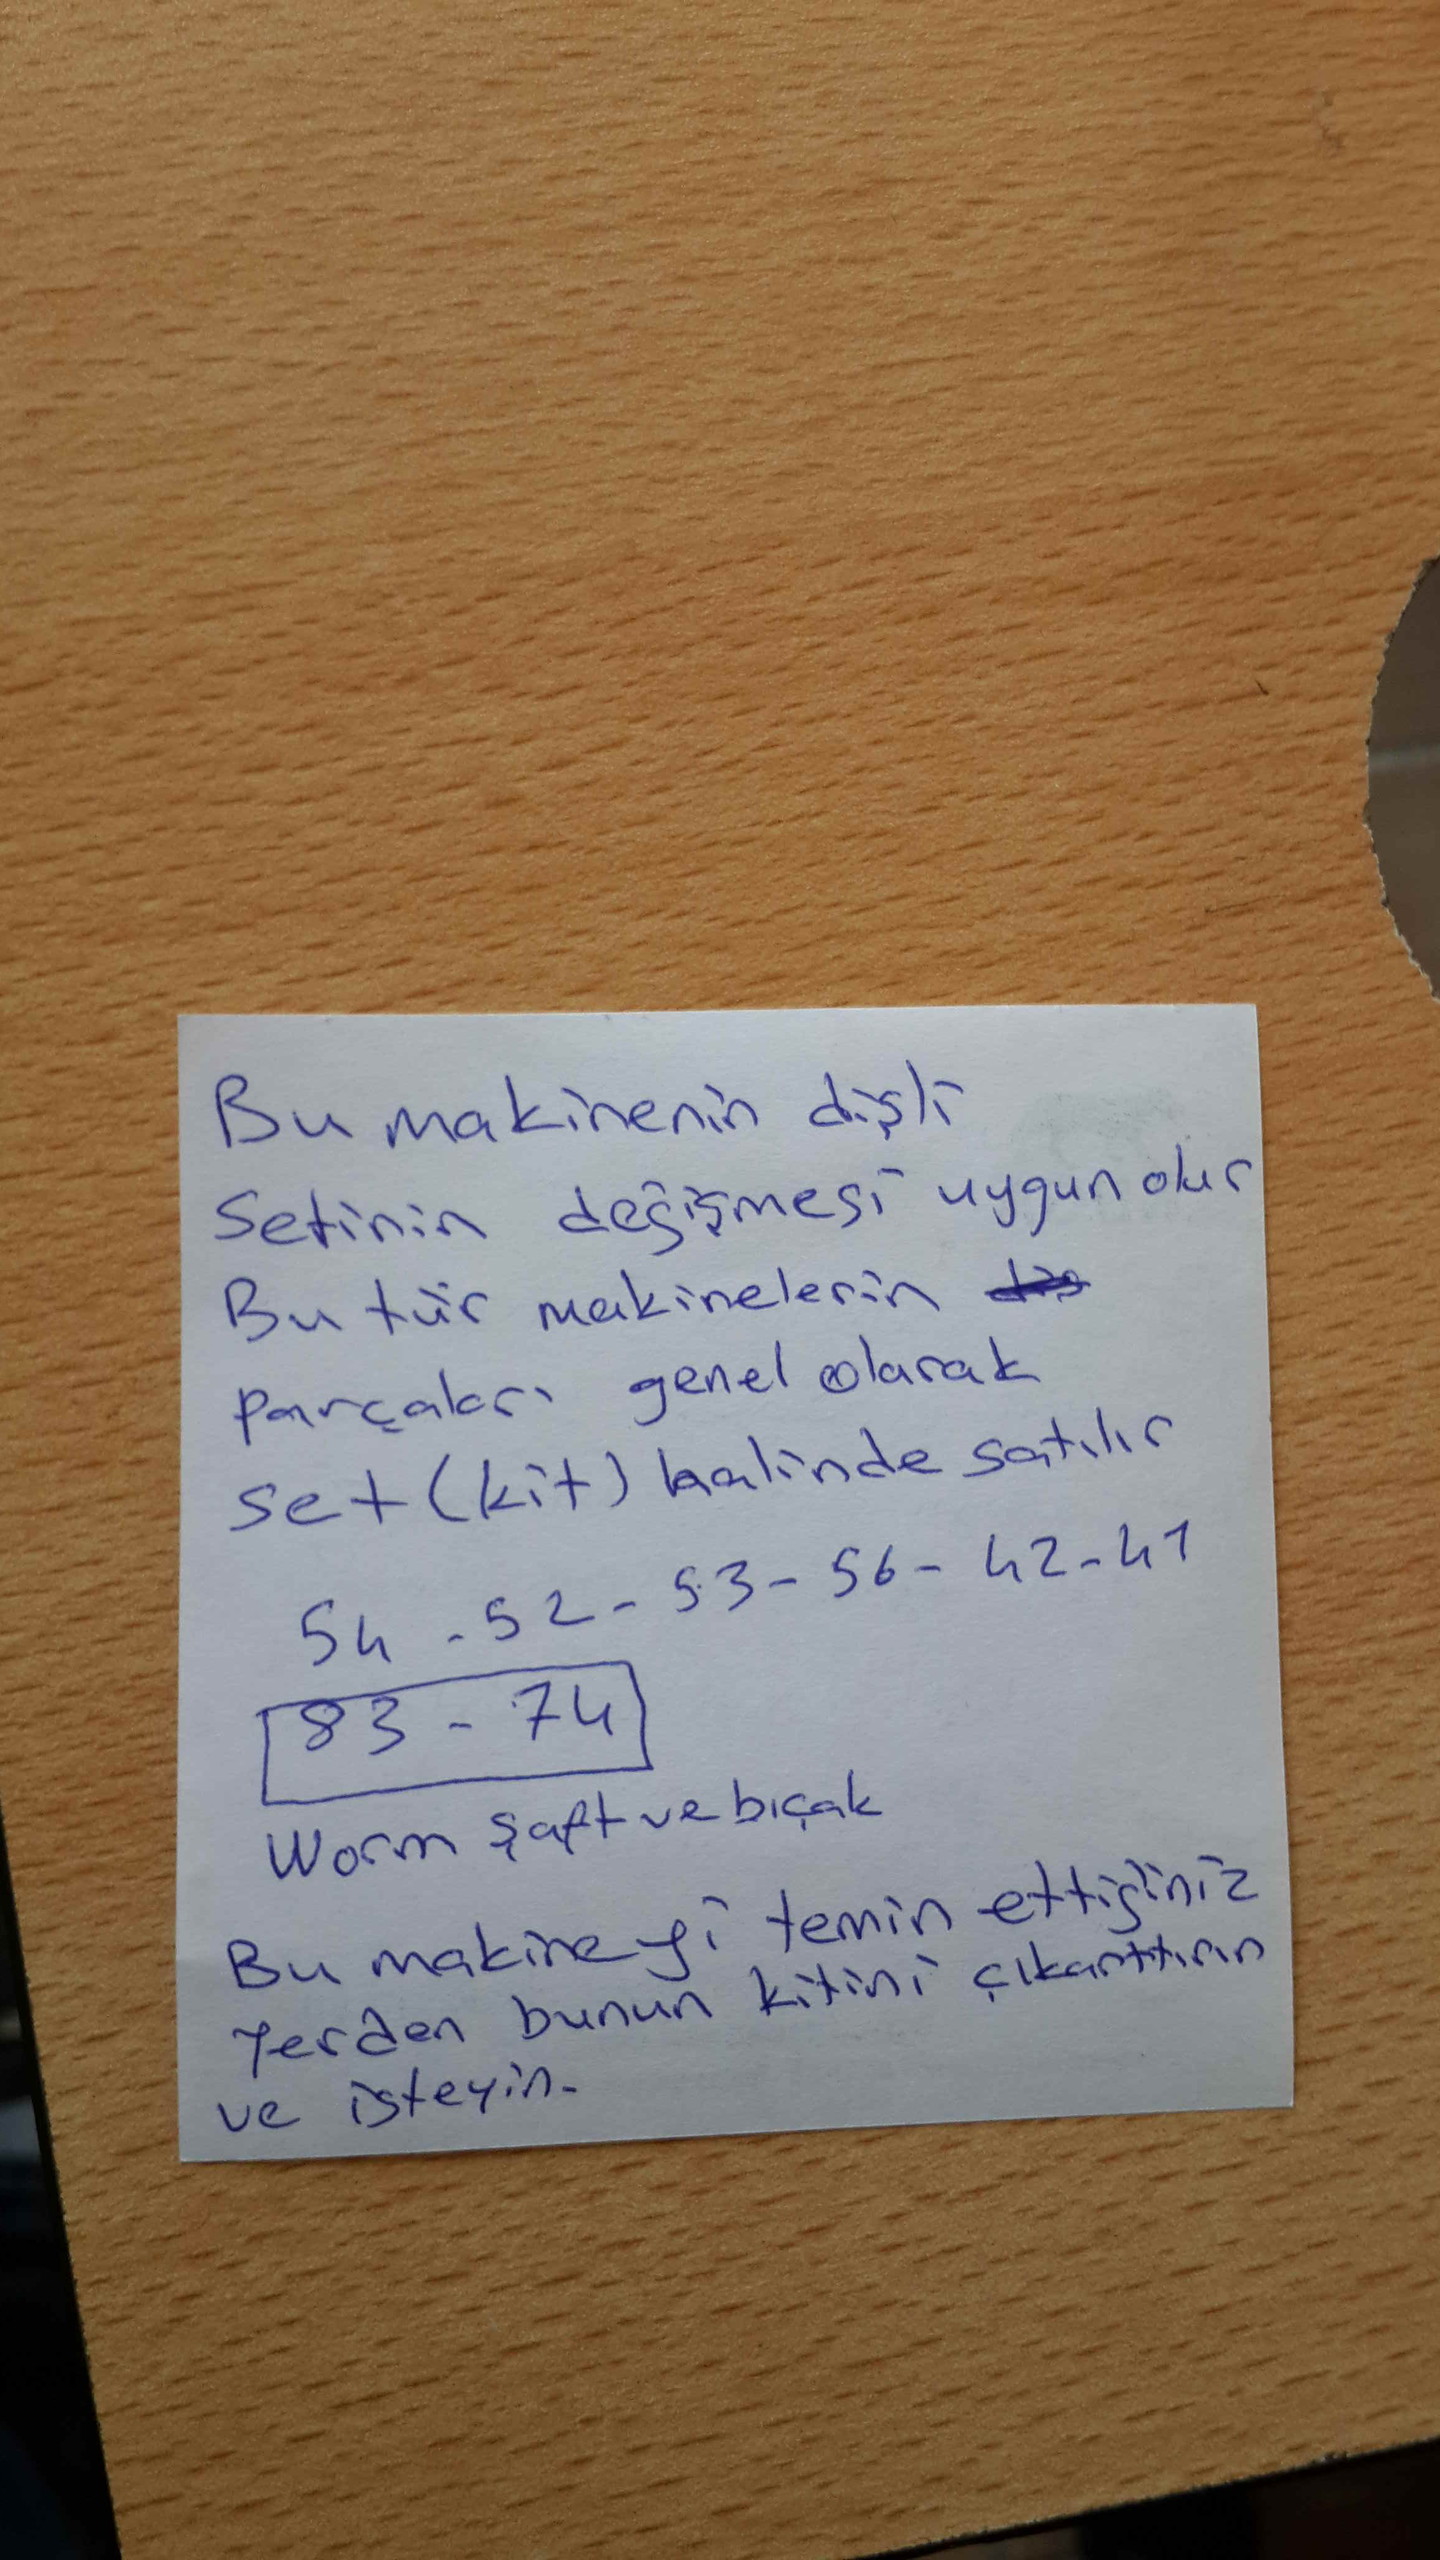 Bu makinenin dişli
Setinin değişmesi uygun olur
Bu tür makinelerin
parçaları genel olarak
set (kit) halinde satılır
54 - 52 - 53 - 56 - 42 - 41
83 - 74
Worm şaft ve bıçak
Bu makineyi temin ettiğiniz
Yerden bunun kitini çıkarttırın
ve isteyin.